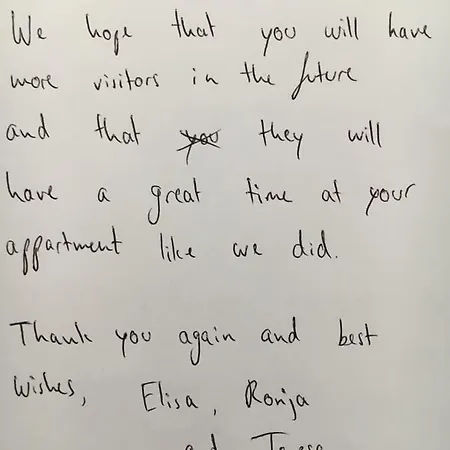 We hope that you will have
more visitors in the future
and that you they will
have a great time at your
appartment like we did.
Thank you again and best
wishes, Elisa, Ronja
and